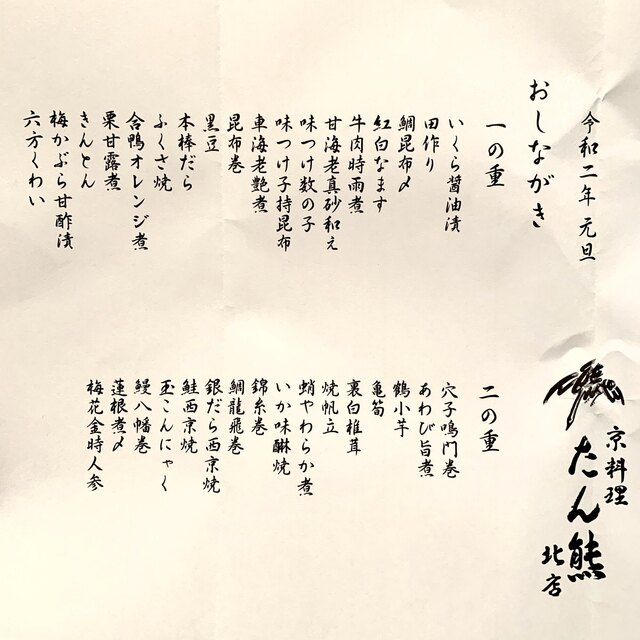 令和二年 元旦
おしながき
一の重
いくら醤油漬
田作り
鯛昆布〆
紅白なます
牛肉時雨煮
甘海老真砂和え
味つけ数の子
味つけ子持昆布
車海老艶煮
昆布巻
黒豆
本棒だら
ふくさ焼
合鴨オレンジ煮
栗甘露煮
きんとん
梅かぶら甘酢漬
六方くわい
二の重
穴子鳴門巻
あわび旨煮
鶴小芋
亀筍
裏白椎茸
焼帆立
蛸やわらか煮
いか味醂焼
錦糸巻
鯛龍飛巻
銀だら西京焼
鮭西京焼
玉こんにゃく
鰻八幡巻
蓮根煮〆
梅花金時人参
京料理
たん熊
北店